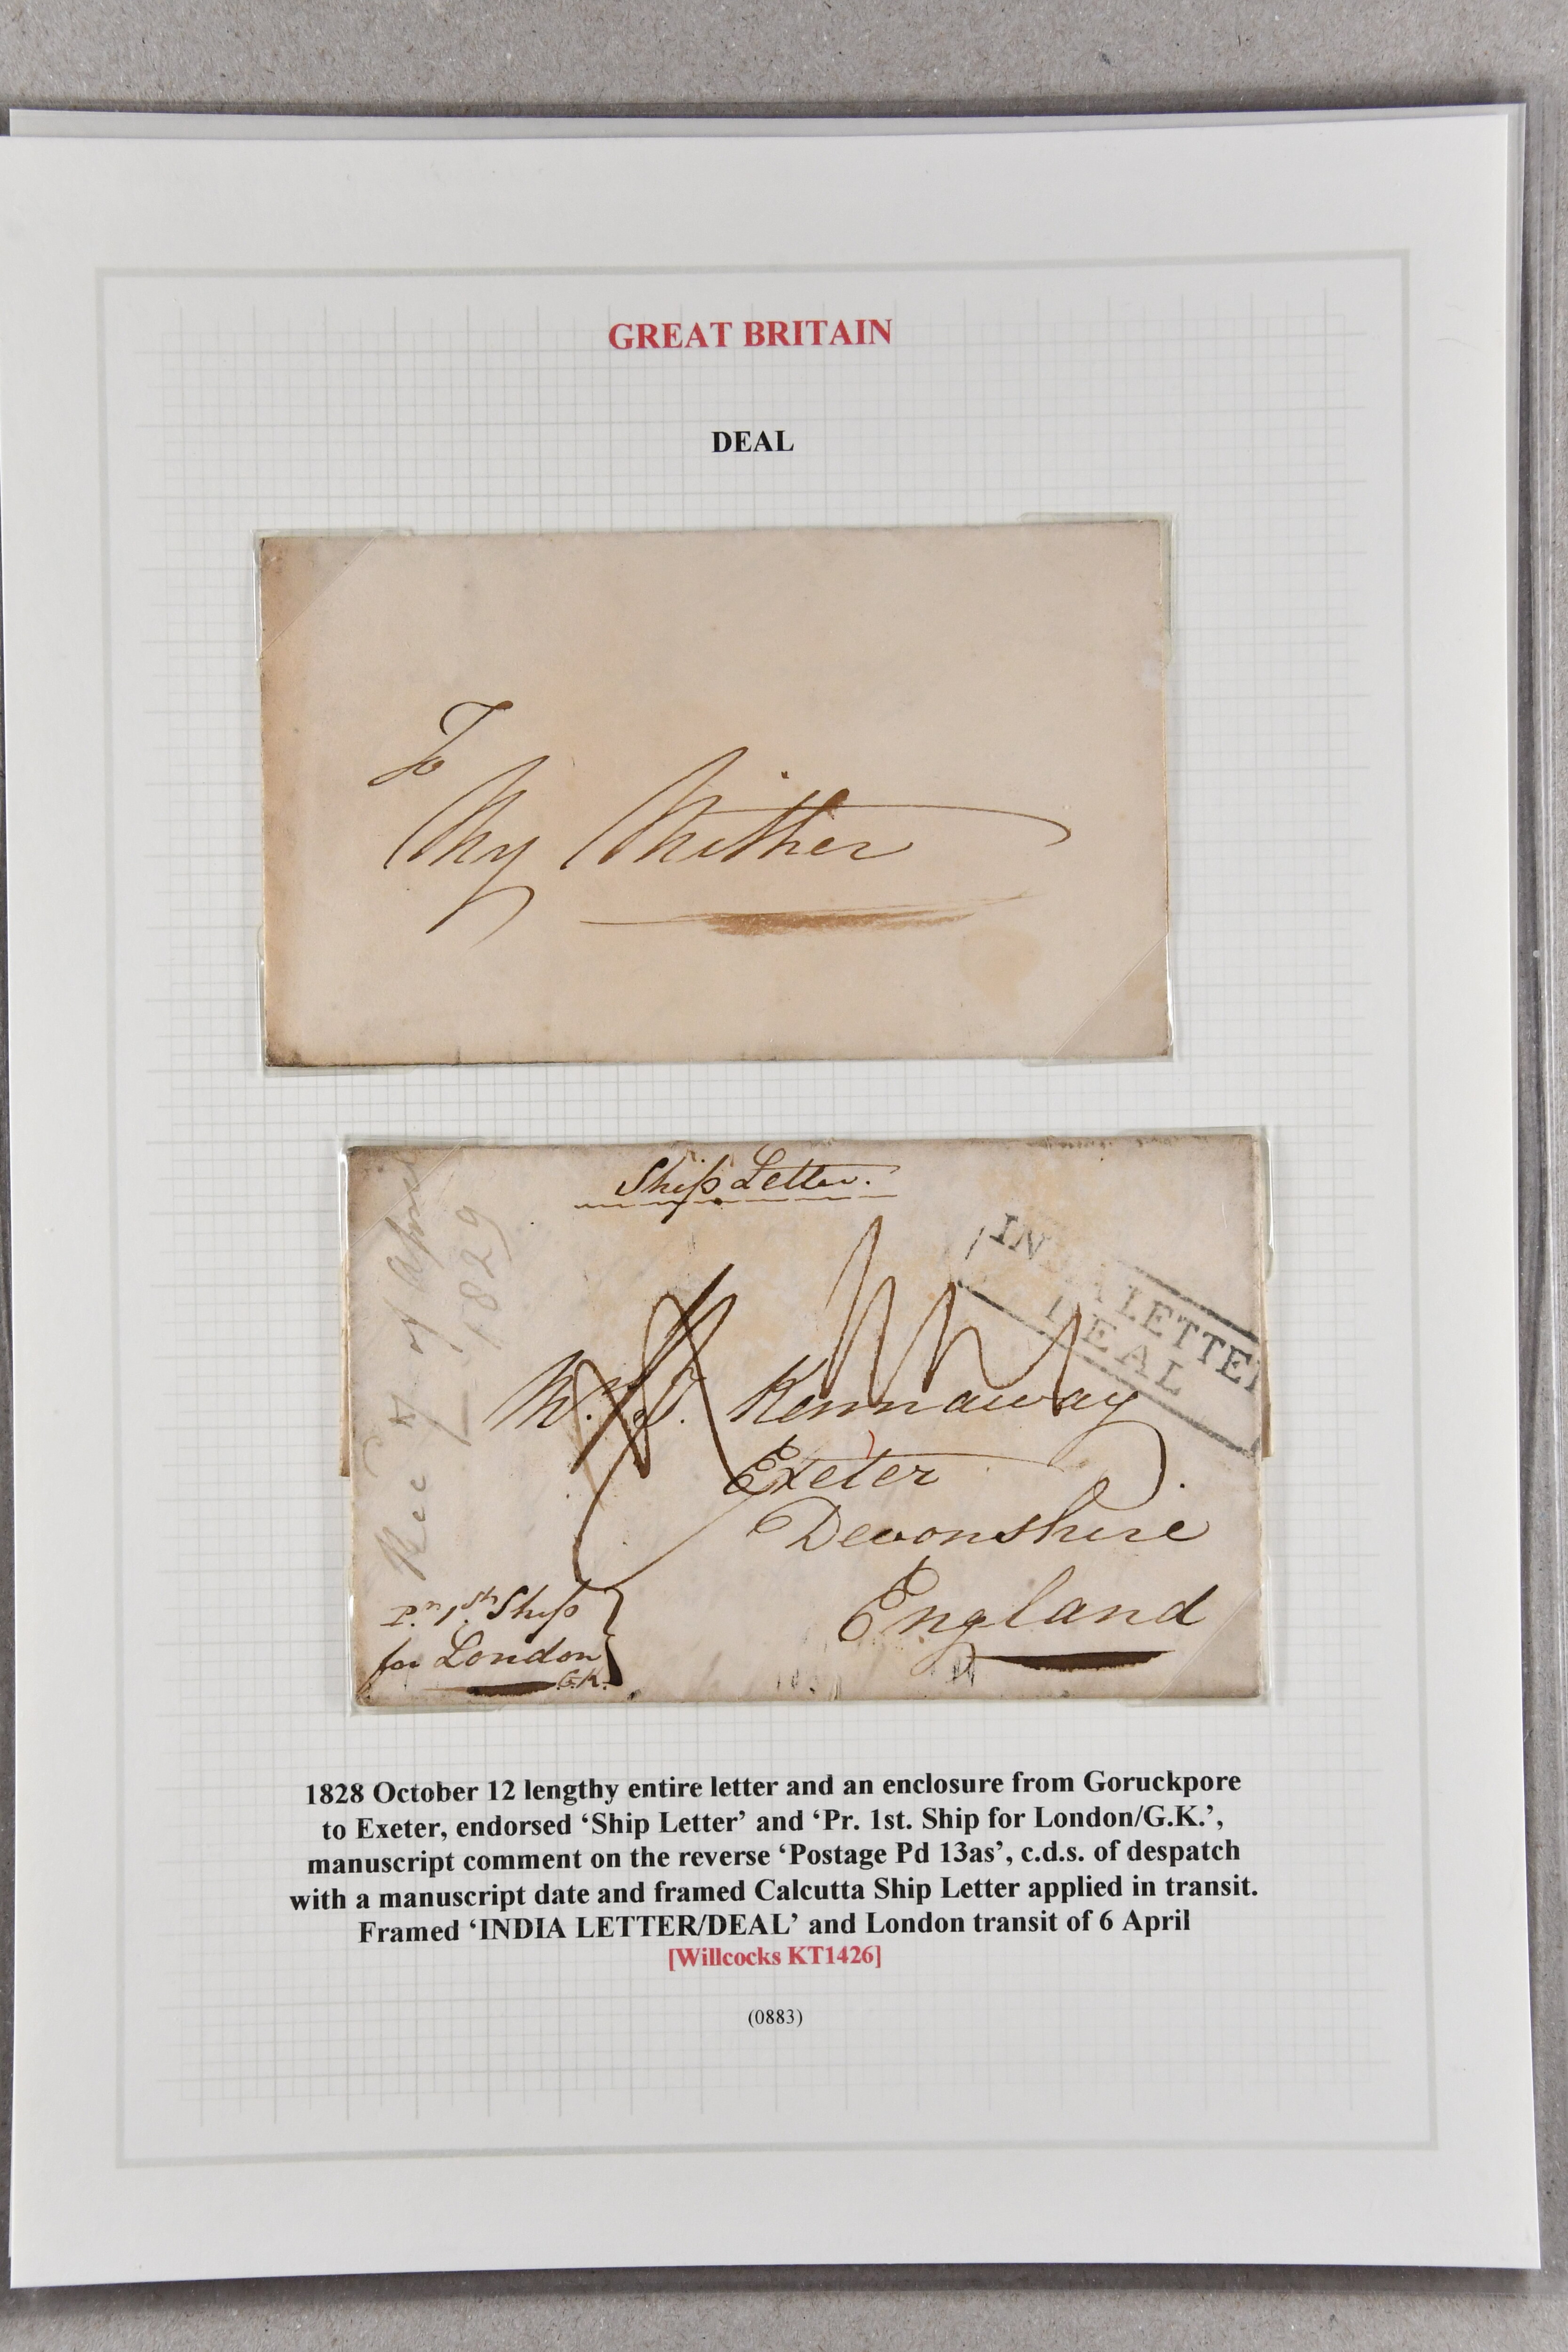 GREAT BRITAIN
DEAL
To
My Mither
Ship Letter.
INDIA LETTER
DEAL
Rec 7 of April
1829
Kennaway
Exeter
Devonshire
England
Pr. 1st Ship
for London
G.K.
1828 October 12 lengthy entire letter and an enclosure from Goruckpore
to Exeter, endorsed ‘Ship Letter’ and ‘Pr. 1st. Ship for London/G.K.’,
manuscript comment on the reverse ‘Postage Pd 13as’, c.d.s. of despatch
with a manuscript date and framed Calcutta Ship Letter applied in transit.
Framed ‘INDIA LETTER/DEAL’ and London transit of 6 April
[Willcocks KT1426]
(0883)